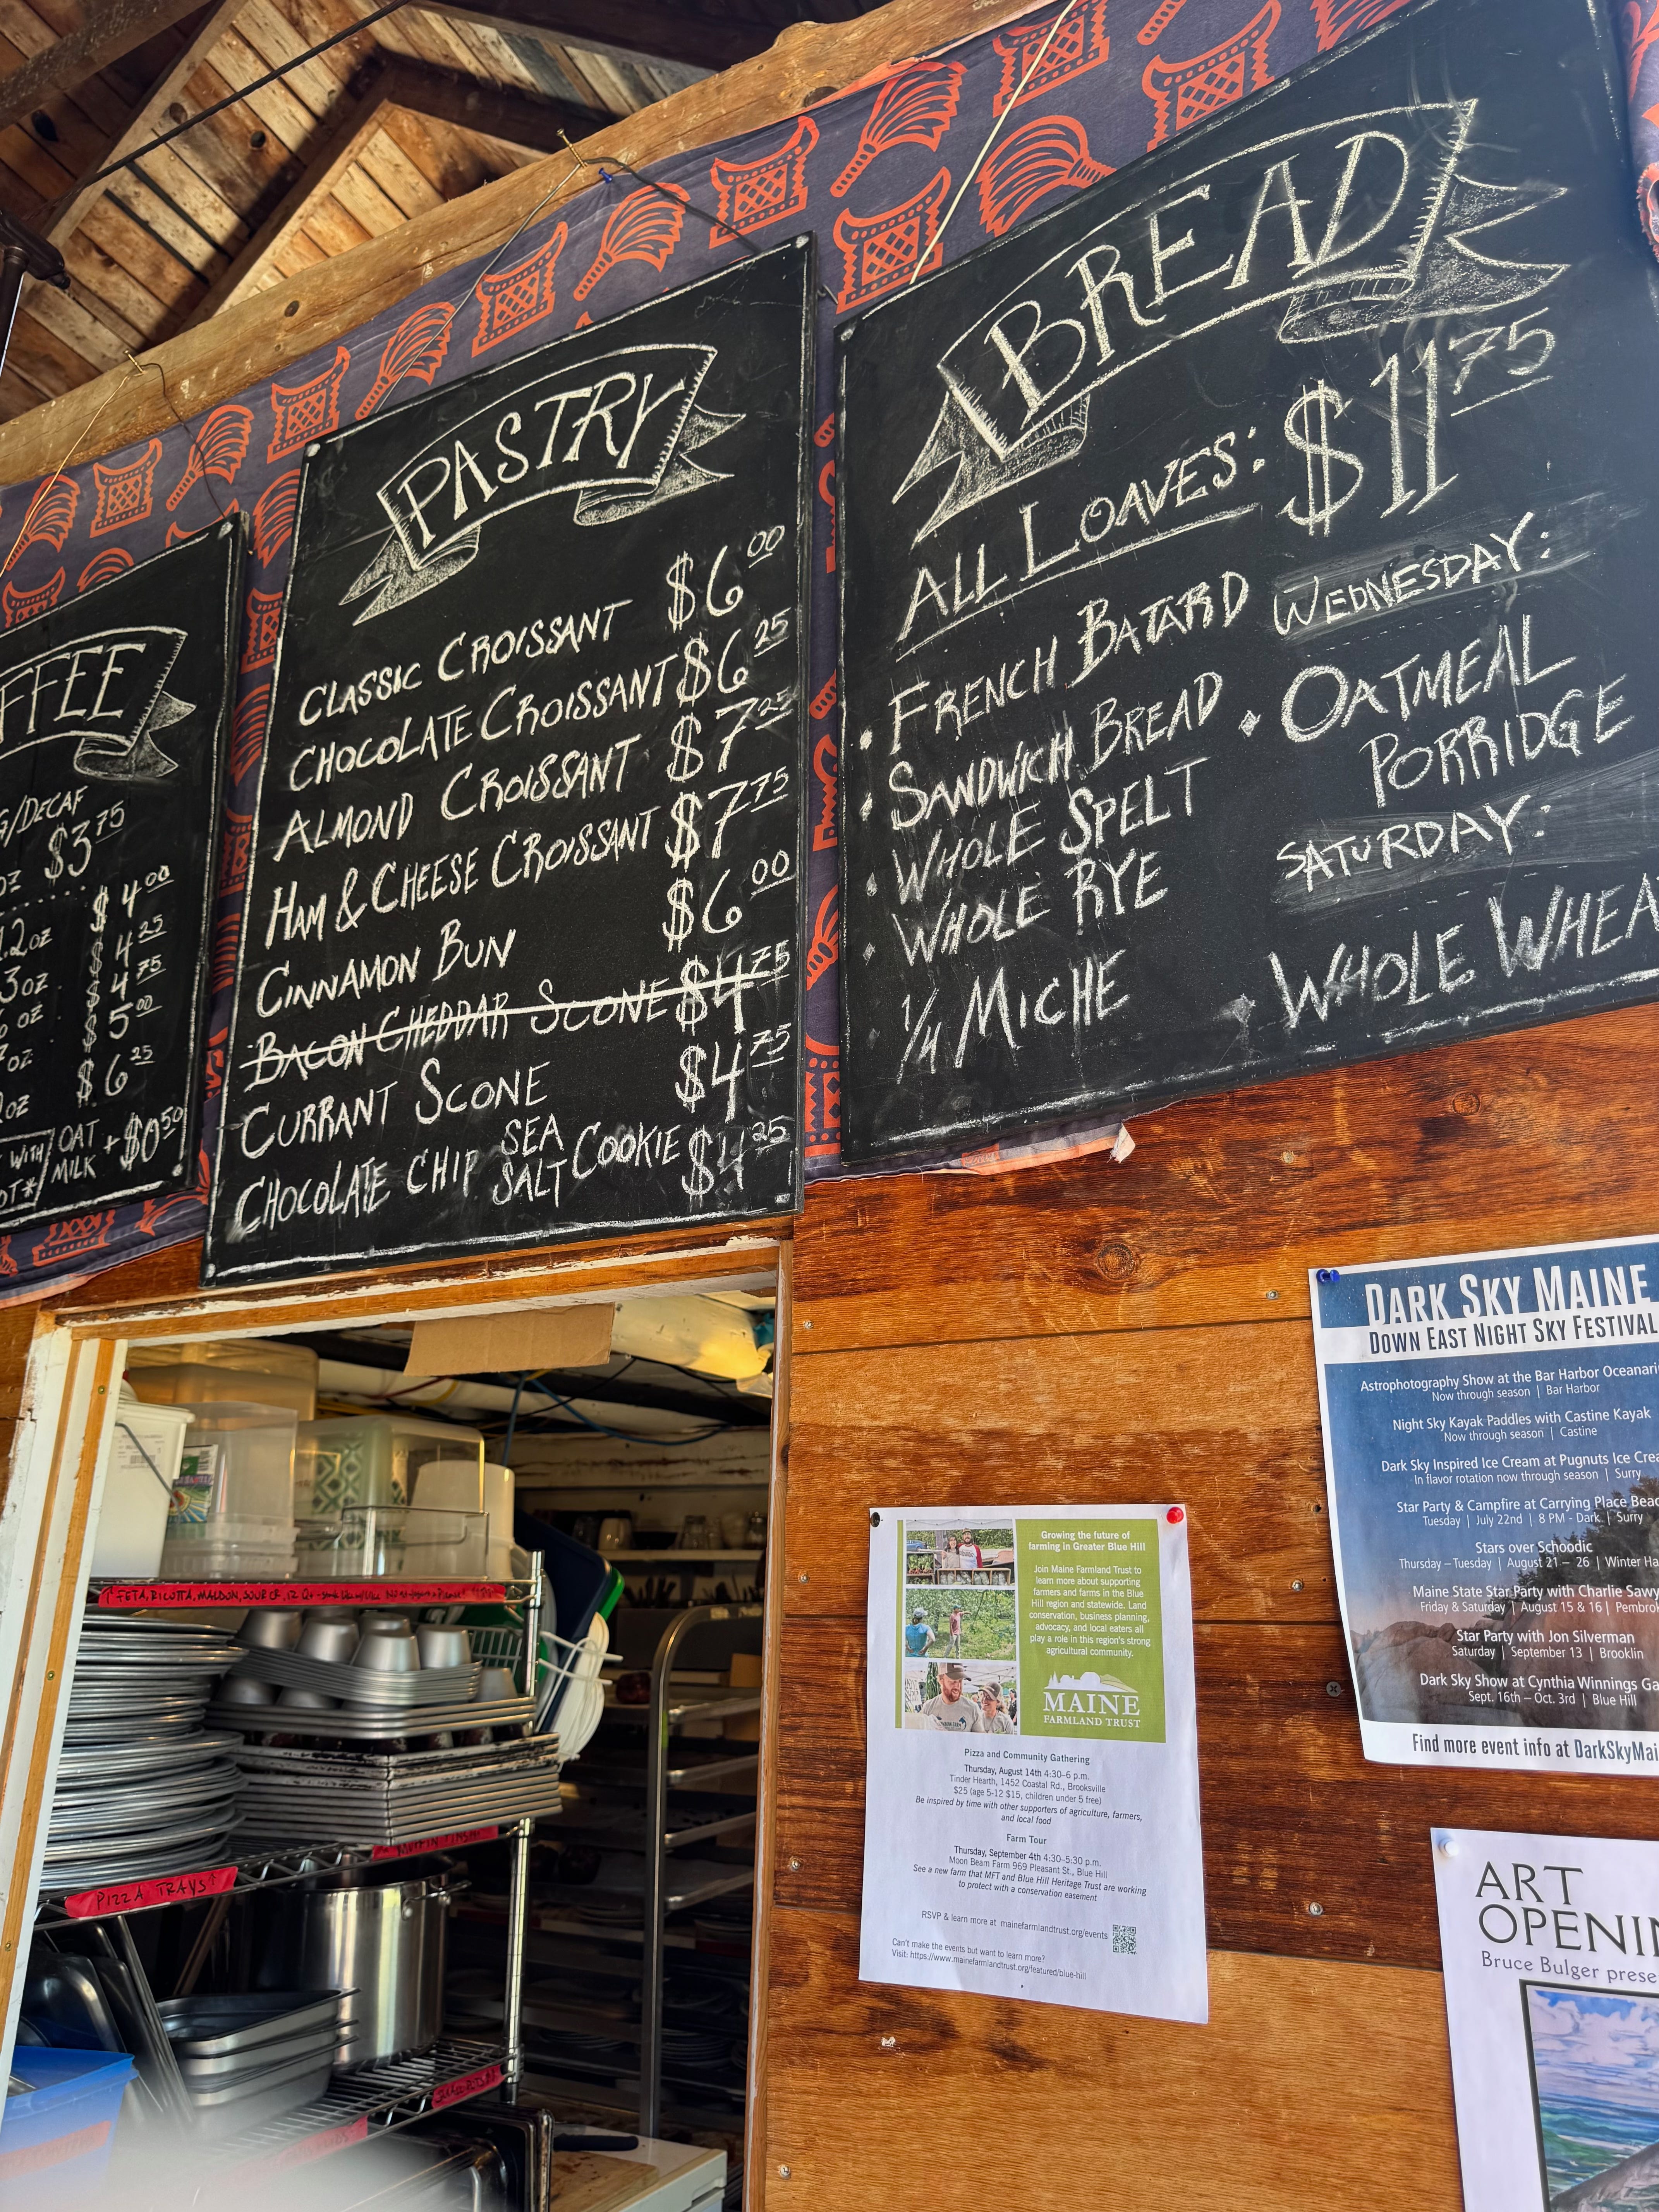 FFEE
G/DECAF
OZ $3.75
.2 OZ $4.00
3 OZ $4.25
OZ $4.75
OZ 5.00
OZ $6.25
WITH OAT MILK + $0.50
OT*
PASTRY
CLASSIC CROISSANT $6.00
CHOCOLATE CROISSANT $6.25
ALMOND CROISSANT $7.25
HAM & CHEESE CROISSANT $7.75
CINNAMON BUN $6.00
BACON CHEDDAR SCONE $4.75
CURRANT SCONE $4.75
CHOCOLATE CHIP SEA SALT COOKIE $4.25
BREAD
ALL LOAVES: $11.75
• FRENCH BATARD
• SANDWICH BREAD
• WHOLE SPELT
• WHOLE RYE
• 1/4 MICHE
WEDNESDAY:
• OATMEAL
PORRIDGE
SATURDAY:
• WHOLE WHEA
DARK SKY MAINE
DOWN EAST NIGHT SKY FESTIVAL
Astrophotography Show at the Bar Harbor Oceanari
Now through season | Bar Harbor
Night Sky Kayak Paddles with Castine Kayak
Now through season | Castine
Dark Sky Inspired Ice Cream at Pugnuts Ice Crea
In flavor rotation now through season | Surry
Star Party & Campfire at Carrying Place Beac
Tuesday | July 22nd | 8 PM - Dark | Surry
Stars over Schoodic
Thursday – Tuesday | August 21 – 26 | Winter Ha
Maine State Star Party with Charlie Sawy
Friday & Saturday | August 15 & 16 | Pembrok
Star Party with Jon Silverman
Saturday | September 13 | Brooklin
Dark Sky Show at Cynthia Winnings Ga
Sept. 16th – Oct. 3rd | Blue Hill
Find more event info at DarkSkyMai
Growing the future of
farming in Greater Blue Hill
Join Maine Farmland Trust to
learn more about supporting
farmers and farms in the Blue
Hill region and statewide. Land
conservation, business planning,
advocacy, and local eaters all
play a role in this region's strong
agricultural community.
MAINE
FARMLAND TRUST
Pizza and Community Gathering
Thursday, August 14th 4:30–6 p.m.
Tinder Hearth, 1452 Coastal Rd., Brooksville
$25 (age 5-12 $15, children under 5 free)
Be inspired by time with other supporters of agriculture, farmers,
and local food
Farm Tour
Thursday, September 4th 4:30–5:30 p.m.
Moon Beam Farm 969 Pleasant St., Blue Hill
See a new farm that MFT and Blue Hill Heritage Trust are working
to protect with a conservation easement
RSVP & learn more at mainefarmlandtrust.org/events
Can't make the events but want to learn more?
Visit: https://www.mainefarmlandtrust.org/featured/blue-hill
ART
OPENIN
Bruce Bulger prese
FETA, RICOTTA, MALDON,
MUFFIN TRAYS
PIZZA TRAYS